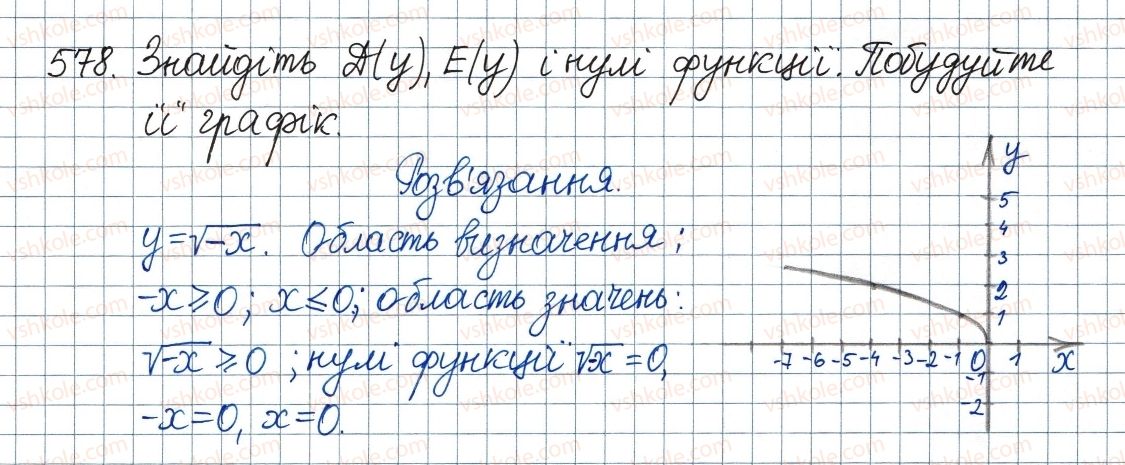 578. Знайдіть D(y), E(y) і нулі функції. Побудуйте
її графік.
Розв'язання.
y=√-x. Область визначення;
-x≥0; x≤0; область значень:
√-x ≥0; нулі функції √-x=0,
-x=0, x=0.
y
5
4
3
2
1
-7 -6 -5 -4 -3 -2 -1 0 1 x
-1
-2